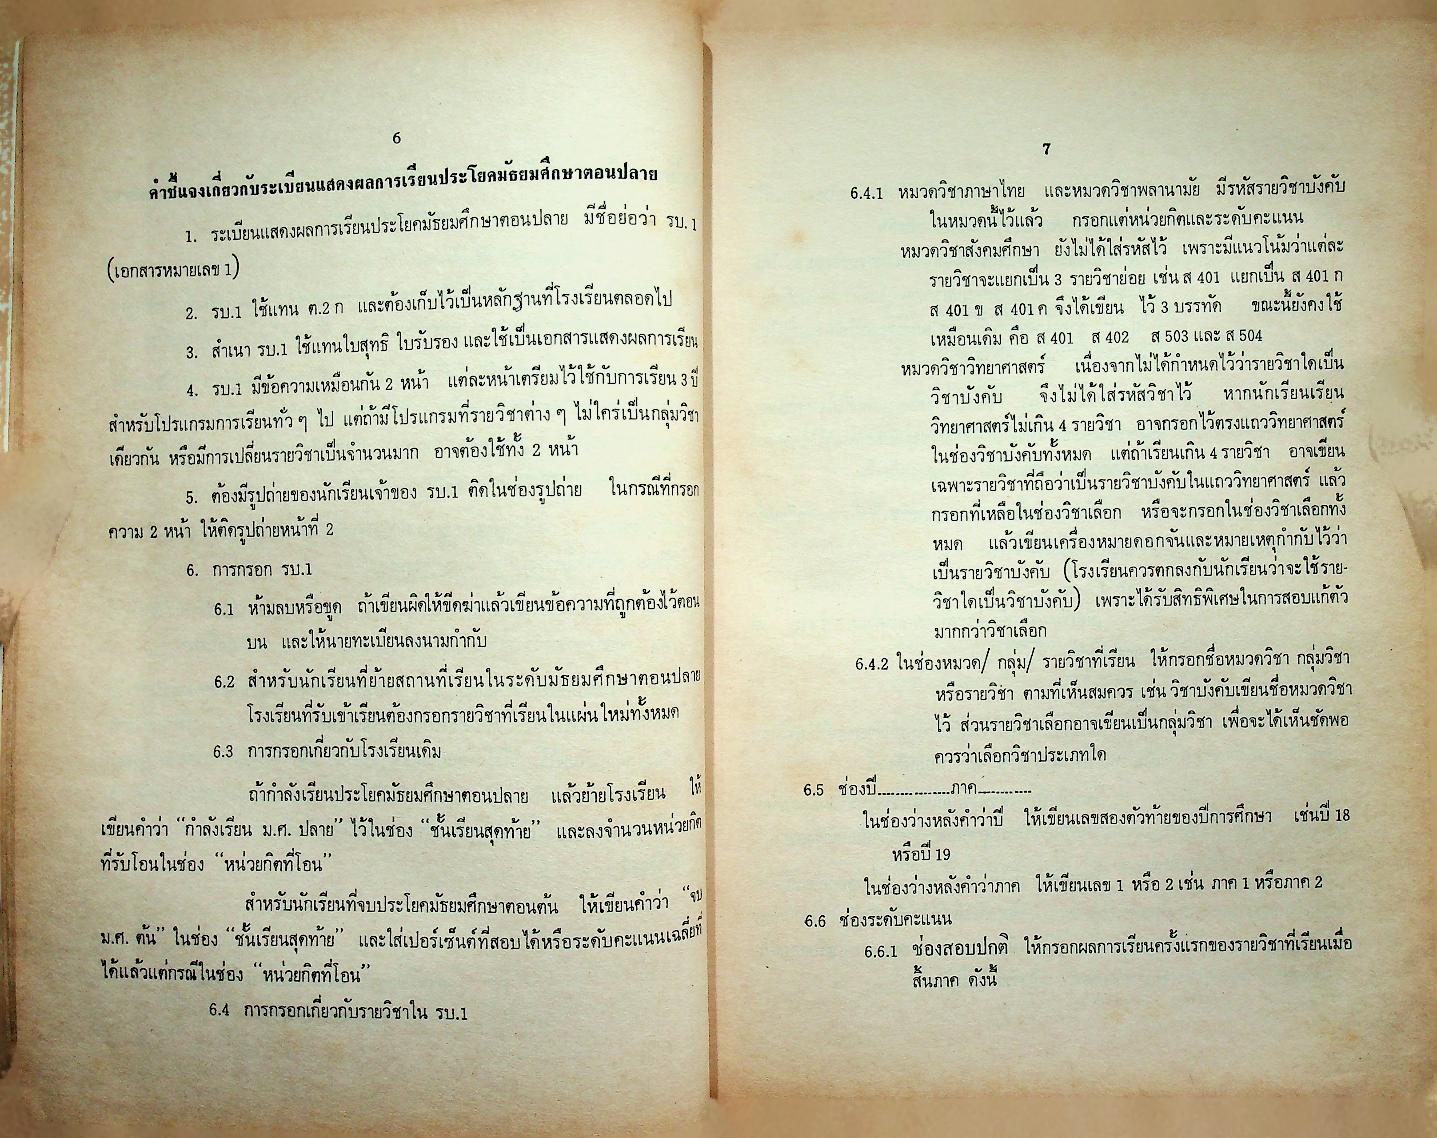 6
คำชี้แจงเกี่ยวกับระเบียนแสดงผลการเรียนประโยคมัธยมศึกษาตอนปลาย
1. ระเบียนแสดงผลการเรียนประโยคมัธยมศึกษาตอนปลาย มีชื่อย่อว่า รบ. 1
(เอกสารหมายเลข 1)
2. รบ.1 ใช้แทน ต.2 ก และต้องเก็บไว้เป็นหลักฐานที่โรงเรียนตลอดไป
3. สำเนา รบ.1 ใช้แทนใบสุทธิ ใบรับรอง และใช้เป็นเอกสารแสดงผลการเรียน
4. รบ.1 มีข้อความเหมือนกัน 2 หน้า แต่ละหน้าเตรียมไว้ใช้กับการเรียน 3 ปี
สำหรับโปรแกรมการเรียนทั่ว ๆ ไป แต่ถ้ามีโปรแกรมที่รายวิชาต่าง ๆ ไม่ใคร่เป็นกลุ่มวิชา
เดียวกัน หรือมีการเปลี่ยนรายวิชาเป็นจำนวนมาก อาจต้องใช้ทั้ง 2 หน้า
5. ต้องมีรูปถ่ายของนักเรียนเจ้าของ รบ.1 ติดในช่องรูปถ่าย ในกรณีที่กรอก
ความ 2 หน้า ให้ติดรูปถ่ายหน้าที่ 2
6. การกรอก รบ.1
6.1 ห้ามลบหรือขูด ถ้าเขียนผิดให้ขีดฆ่าแล้วเขียนข้อความที่ถูกต้องไว้ตอน
บน และให้นายทะเบียนลงนามกำกับ
6.2 สำหรับนักเรียนที่ย้ายสถานที่เรียนในระดับมัธยมศึกษาตอนปลาย
โรงเรียนที่รับเข้าเรียนต้องกรอกรายวิชาที่เรียนในแผ่นใหม่ทั้งหมด
6.3 การกรอกเกี่ยวกับโรงเรียนเดิม
ถ้ากำลังเรียนประโยคมัธยมศึกษาตอนปลาย แล้วย้ายโรงเรียน ให้
เขียนคำว่า “กำลังเรียน ม.ศ. ปลาย” ไว้ในช่อง “ชั้นเรียนสุดท้าย” และลงจำนวนหน่วยกิต
ที่รับโอนในช่อง “หน่วยกิตที่โอน”
สำหรับนักเรียนที่จบประโยคมัธยมศึกษาตอนต้น ให้เขียนคำว่า “จบ
ม.ศ. ต้น” ในช่อง “ชั้นเรียนสุดท้าย” และใส่เปอร์เซ็นต์ที่สอบได้หรือระดับคะแนนเฉลี่ยที่
ได้แล้วแต่กรณีในช่อง “หน่วยกิตที่โอน”
6.4 การกรอกเกี่ยวกับรายวิชาใน รบ.1
7
6.4.1 หมวดวิชาภาษาไทย และหมวดวิชาพลานามัย มีรหัสรายวิชาบังคับ
ในหมวดนี้ไว้แล้ว กรอกแต่หน่วยกิตและระดับคะแนน
หมวดวิชาสังคมศึกษา ยังไม่ได้ใส่รหัสไว้ เพราะมีแนวโน้มว่าแต่ละ
รายวิชาจะแยกเป็น 3 รายวิชาย่อย เช่น ส 401 แยกเป็น ส 401 ก
ส 401 ข ส 401 ค จึงได้เขียน ไว้ 3 บรรทัด ขณะนี้ยังคงใช้
เหมือนเดิม คือ ส 401 ส 402 ส 503 และ ส 504
หมวดวิชาวิทยาศาสตร์ เนื่องจากไม่ได้กำหนดไว้ว่ารายวิชาใดเป็น
วิชาบังคับ จึงไม่ได้ใส่รหัสวิชาไว้ หากนักเรียนเรียน
วิทยาศาสตร์ไม่เกิน 4 รายวิชา อาจกรอกไว้ตรงแถววิทยาศาสตร์
ในช่องวิชาบังคับทั้งหมด แต่ถ้าเรียนเกิน 4 รายวิชา อาจเขียน
เฉพาะรายวิชาที่ถือว่าเป็นรายวิชาบังคับในแถววิทยาศาสตร์ แล้ว
กรอกที่เหลือในช่องวิชาเลือก หรือจะกรอกในช่องวิชาเลือกทั้ง
หมด แล้วเขียนเครื่องหมายดอกจันและหมายเหตุกำกับไว้ว่า
เป็นรายวิชาบังคับ (โรงเรียนควรตกลงกับนักเรียนว่าจะใช้ราย-
วิชาใดเป็นวิชาบังคับ) เพราะได้รับสิทธิพิเศษในการสอบแก้ตัว
มากกว่าวิชาเลือก
6.4.2 ในช่องหมวด/ กลุ่ม/ รายวิชาที่เรียน ให้กรอกชื่อหมวดวิชา กลุ่มวิชา
หรือรายวิชา ตามที่เห็นสมควร เช่น วิชาบังคับเขียนชื่อหมวดวิชา
ไว้ ส่วนรายวิชาเลือกอาจเขียนเป็นกลุ่มวิชา เพื่อจะได้เห็นชัดพอ
ควรว่าเลือกวิชาประเภทใด
6.5 ช่องปี.................ภาค............
ในช่องว่างหลังคำว่าปี ให้เขียนเลขสองตัวท้ายของปีการศึกษา เช่นปี 18
หรือปี 19
ในช่องว่างหลังคำว่าภาค ให้เขียนเลข 1 หรือ 2 เช่น ภาค 1 หรือภาค 2
6.6 ช่องระดับคะแนน
6.6.1 ช่องสอบปกติ ให้กรอกผลการเรียนครั้งแรกของรายวิชาที่เรียนเมื่อ
สิ้นภาค ดังนี้